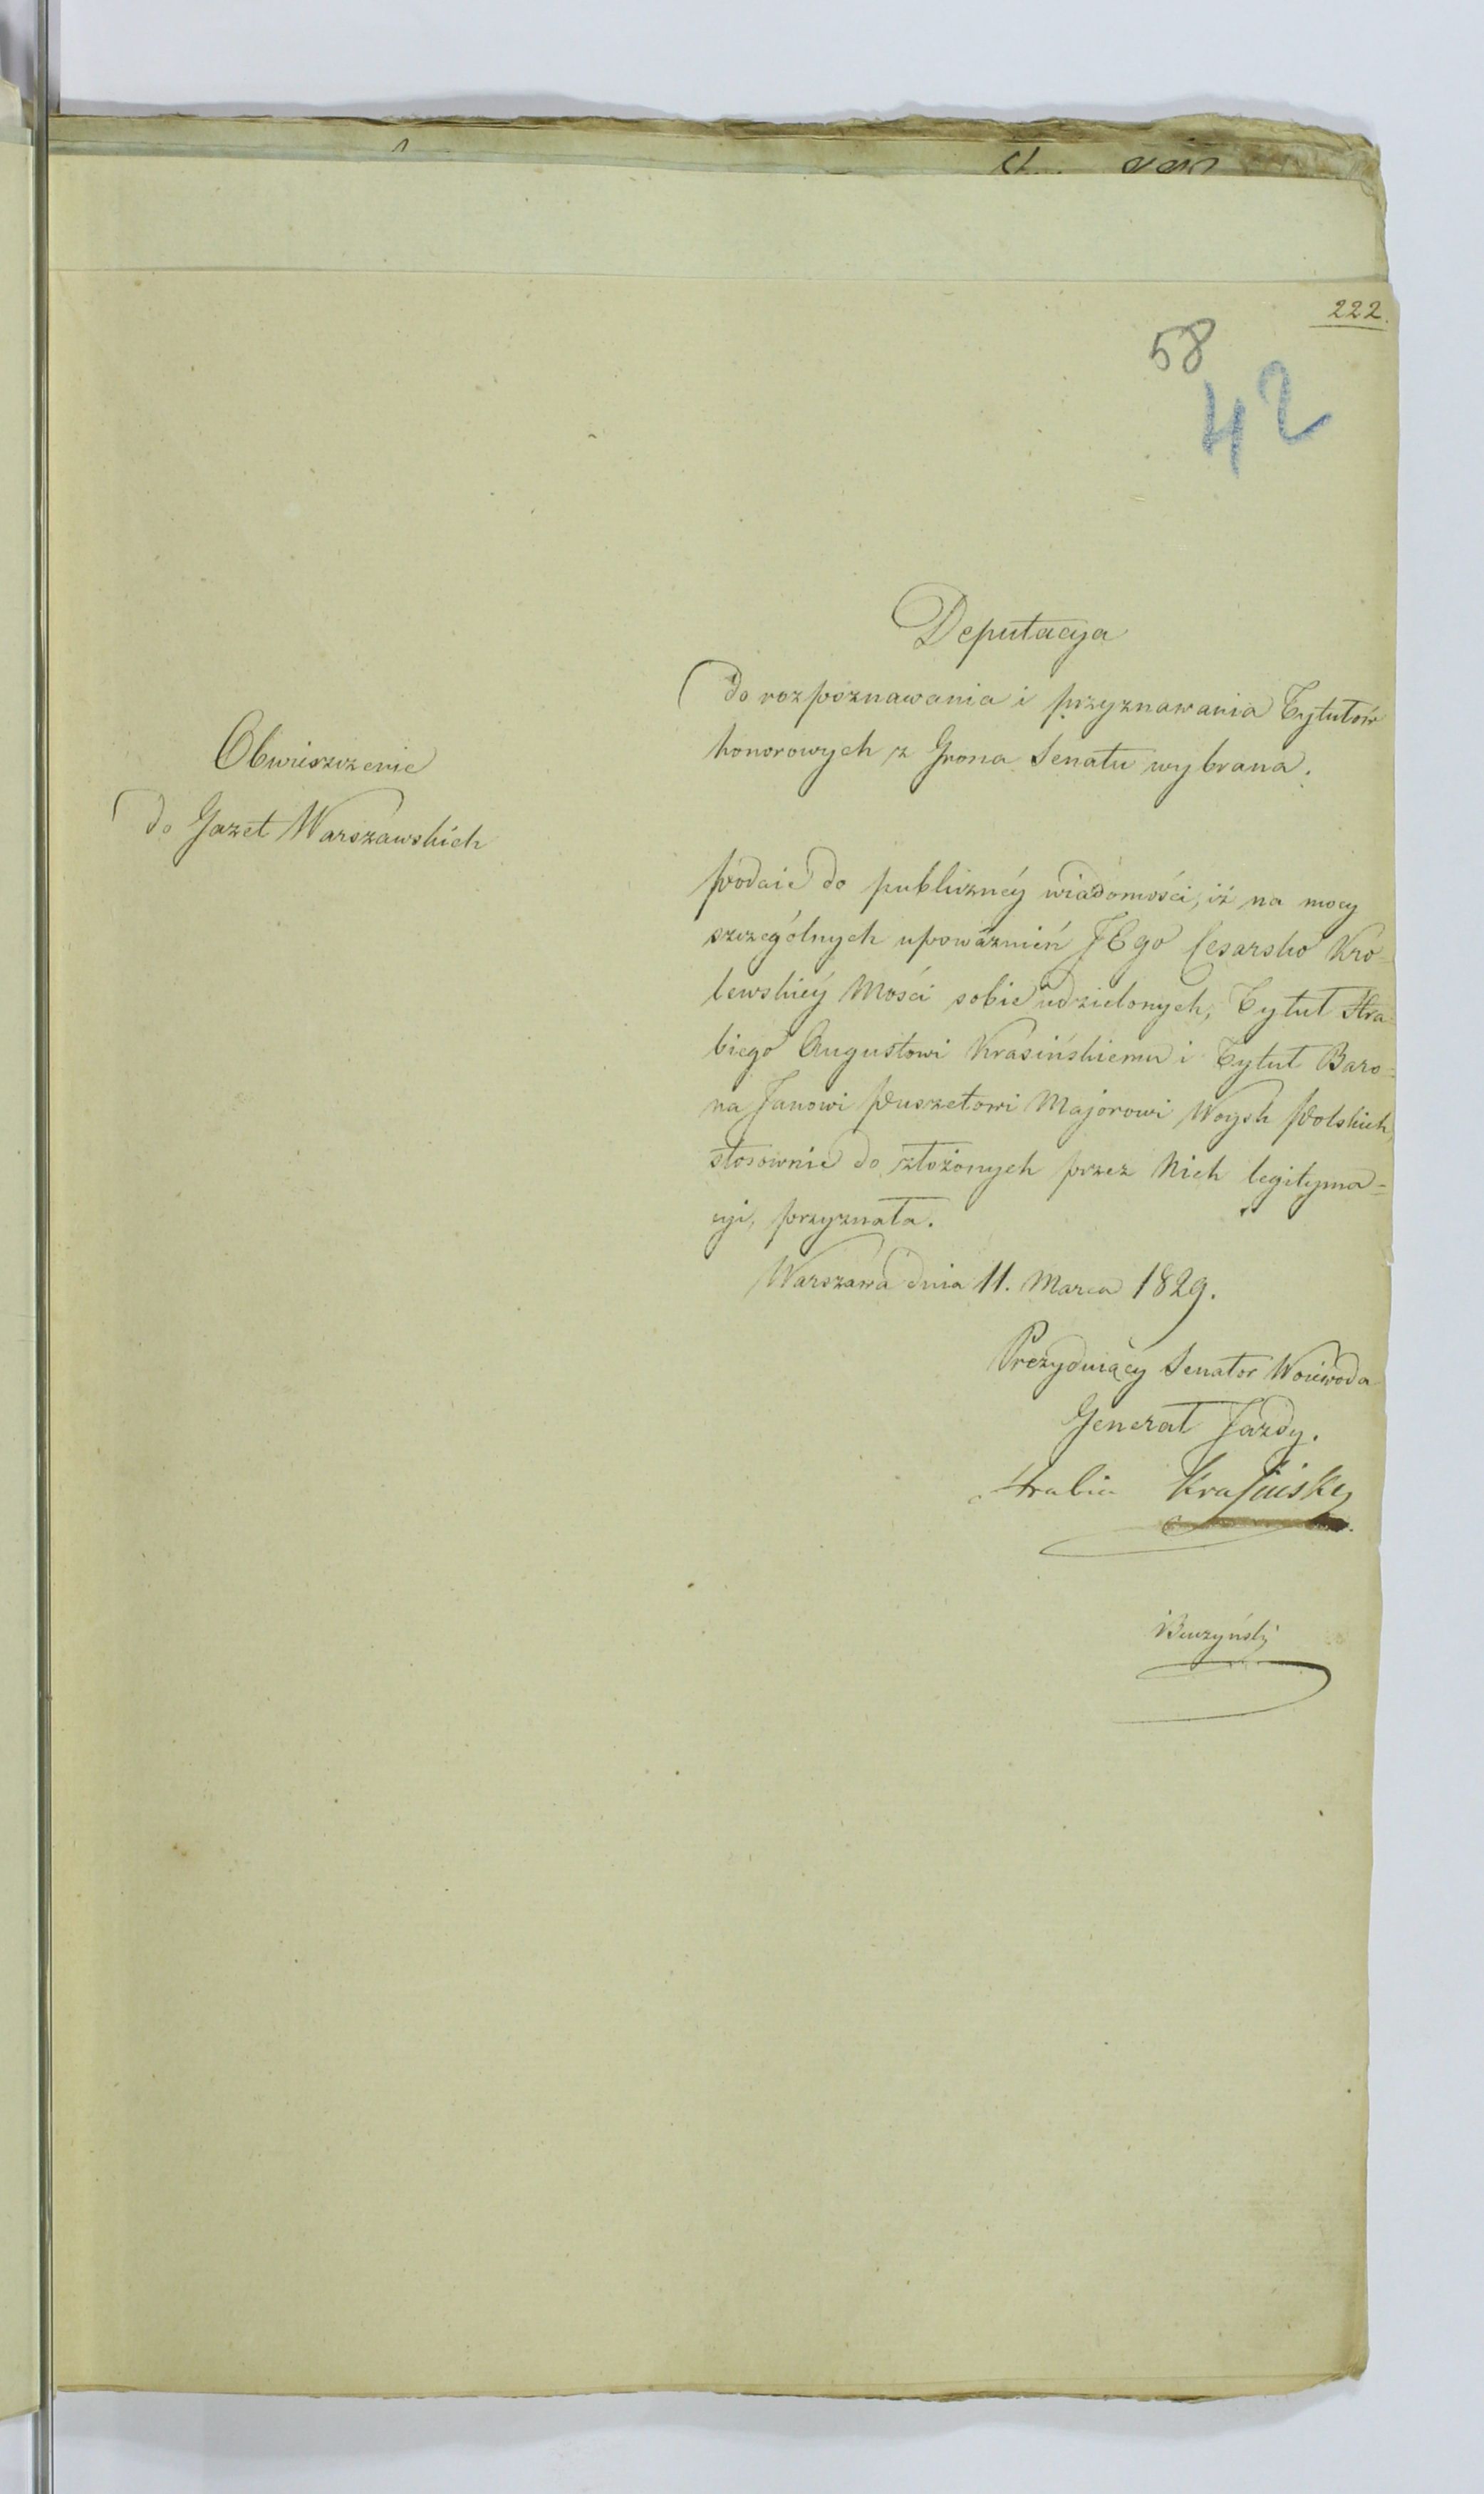 222.
58
42
Deputacya
do rozpoznawania i przyznawania Tytułów
honorowych z Grona Senatu wybrana.
Obwieszczenie
do Gazet Warszawskich
podaie do publiczney wiadomości, iż na mocy
szczególnych upoważnień JEgo Cesarsko Kro-
lewskiey Mości sobie udzielonych, Tytuł Hra-
biego Augustowi Krasińskiemu i Tytuł Baro-
na Janowi Puszetowi Majorowi Woysk Polskich,
stosownie do złożonych przez Nich legityma-
cyi, przyznała.
Warszawa dnia 11. Marca 1829.
Prezyduiący Senator Woiewoda
Generał Jazdy.
Hrabia Krasiński